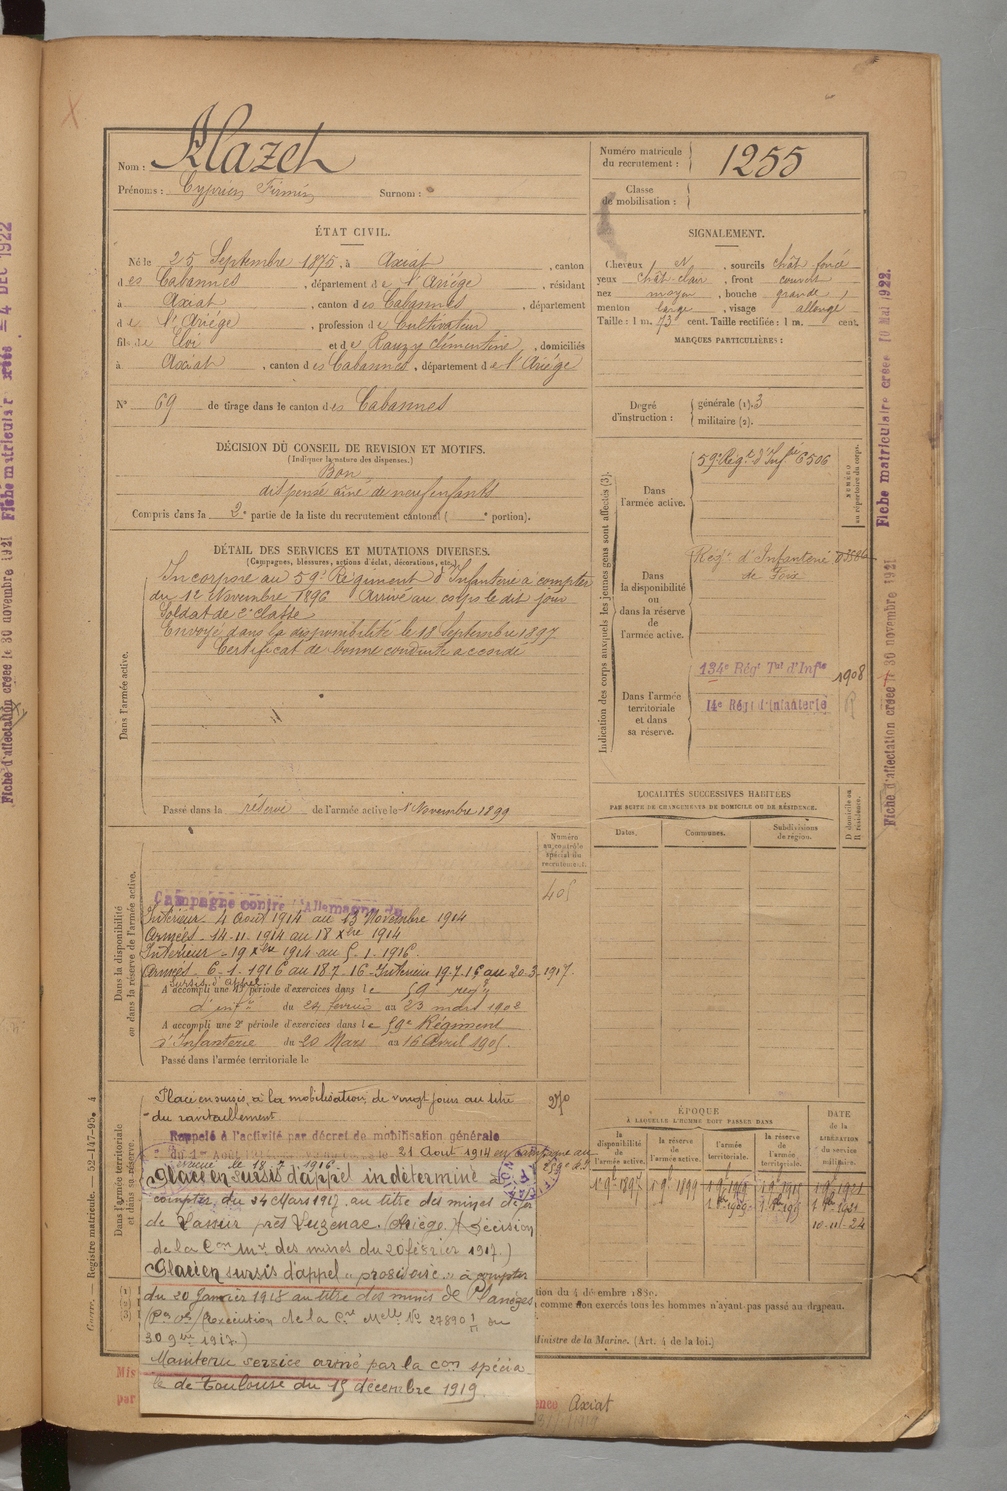 Nom : Mazet
Prénoms : Cyprien Firmin Surnom :
Numéro matricule du recrutement : 1255
Classe de mobilisation :
ÉTAT CIVIL.
Né le 25 Septembre 1875, à Axiat, canton
des Cabannes, département de l'Ariège, résidant
à Axiat, canton des Cabannes, département
de l'Ariège, profession de Cultivateur
fils de Eloi et de Rauzy Clémentine, domiciliés
à Axiat, canton des Cabannes, département de l'Ariège
N° 69 de tirage dans le canton des Cabannes
SIGNALEMENT.
Cheveux N, sourcils chât foncé
yeux chât-clair, front couvert
nez moyen, bouche grande,
menton large, visage allongé
Taille : 1 m. 73 cent. Taille rectifiée : 1 m. cent.
MARQUES PARTICULIÈRES :
Degré d'instruction : générale (1). 3
militaire (2).
DÉCISION DU CONSEIL DE REVISION ET MOTIFS.
(Indiquer la nature des dispenses.)
Bon
dispensé aîné de neuf enfants
Compris dans la 2e partie de la liste du recrutement cantonal ( e portion).
DÉTAIL DES SERVICES ET MUTATIONS DIVERSES.
(Campagnes, blessures, actions d'éclat, décorations, etc.)
Dans l'armée active.
Incorporé au 59e Régiment d'Infanterie à compter
du 12 Novembre 1896 Arrivé au corps le dit jour
Soldat de 2e classe
Envoyé dans la disponibilité le 18 Septembre 1897
Certificat de bonne conduite accordé
Passé dans la réserve de l'armée active le 1er Novembre 1899
Indication des corps auxquels les jeunes gens sont affectés (3).
NUMÉRO au répertoire du corps.
Dans l'armée active.
59e Régt d'Infie 6506
Dans la disponibilité ou dans la réserve de l'armée active.
Régt d'Infanterie
de Foix
Dans l'armée territoriale et dans sa réserve.
134e Régt Tal d'Infie 1908
14e Régt d'Infanterie
LOCALITÉS SUCCESSIVES HABITÉES
PAR SUITE DE CHANGEMENTS DE DOMICILE OU DE RÉSIDENCE.
Dates. Communes. Subdivisions de région. D domicile ou R résidence.
Numéro au contrôle spécial du recrutement.
405
Dans la disponibilité ou dans la réserve de l'armée active.
Campagne contre l'Allemagne du
Intérieur - 4 Août 1914 au 13 Novembre 1914
Armées - 14-11-1914 au 18 Xbre 1914
Intérieur - 19 Xbre 1914 au 5-1-1916
Armées - 6-1-1916 au 18-7-16 - Intérieur 19-7-16 au 20-3-1917
sursis d'appel
A accompli une 1re période d'exercices dans le 59e régt
d'infie du 24 février au 23 mars 1902
A accompli une 2e période d'exercices dans le 59e Régiment
d'Infanterie du 20 Mars au 16 Avril 1905.
Passé dans l'armée territoriale le
Dans l'armée territoriale et dans sa réserve.
Placé en sursis, à la mobilisation, de vingt jours au titre
du ravitaillement
270
Rappelé à l'activité par décret de mobilisation générale
21 Août 1914
Placé en sursis d'appel indéterminé à
compter du 24 Mars 1917 au titre des mines de fer
de Lassur près Luzenac (Ariège) (Décision
de la Con Mre des mines du 20 février 1917.)
Placé en sursis d'appel "provisoire" à compter
du 20 Janvier 1918 au titre des mines de
30 9bre 1917.)
Maintenu service armé par la con spécia-
le de Toulouse du 15 décembre 1919.
ÉPOQUE
À LAQUELLE L'HOMME DOIT PASSER DANS
la disponibilité de l'armée active. la réserve de l'armée active. l'armée territoriale. la réserve de l'armée territoriale.
DATE DE LA LIBÉRATION du service militaire.
1er 9bre 1897 1er 9bre 1899
10-11-24
comme non exercés tous les hommes n'ayant pas passé au drapeau.
Ministre de la Marine. (Art. 4 de la loi.)
Axiat
Guerre. — Registre matricule. — 52-147-95. 4
Fiche matriculaire créée 10 Mai 1922.
Fiche d'affectation créée le 30 novembre 1921
Fiche matriculaire créée 4 DEC 1922
Fiche d'affectation créée le 30 novembre 1921